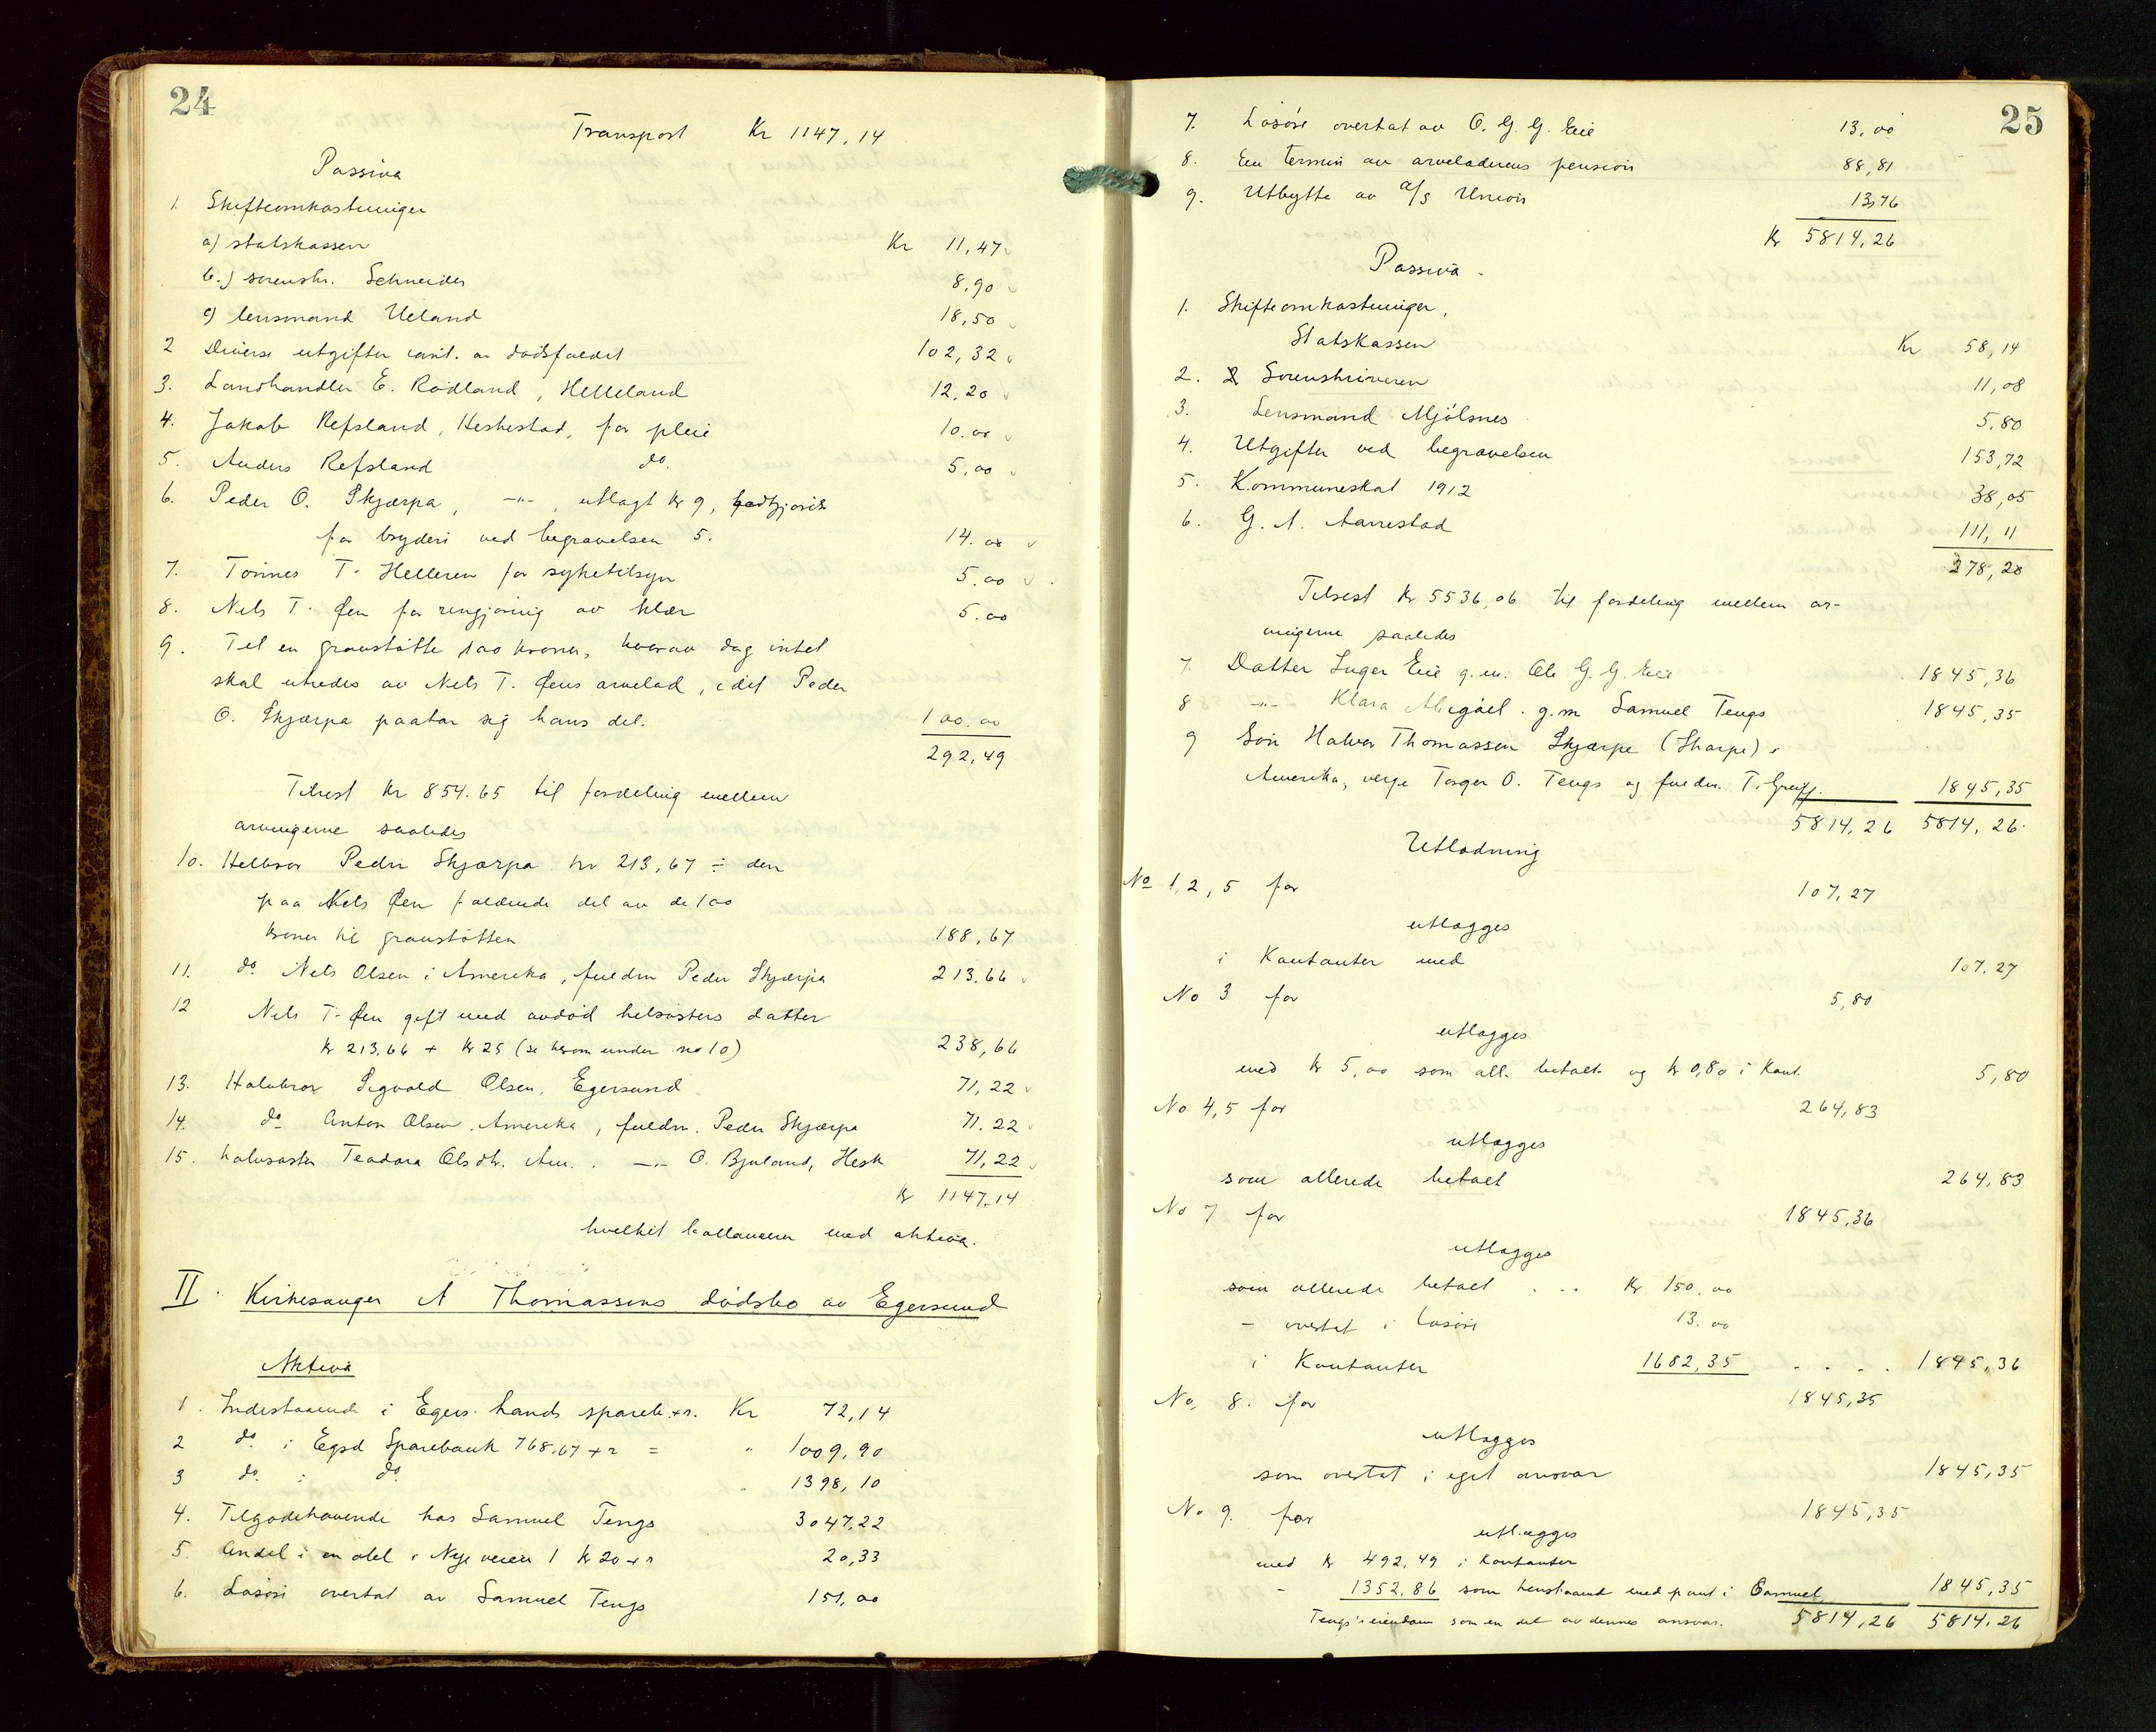 24
Transport Kr 1147,14
Passiva
1. Skifteomkostninger
a) statskassen Kr 11,47
b.) sorenskr. Schneider 8,90
c) lensmand Ueland 18,50
2 Diverse utgifter anl. av dødsfaldet 102,32
3. Landhandler E. Rødland, Helleland 12,20
4. Jakob Refsland, Heskestad, for pleie 10.00
5. Anders Refsland do. 5,00
6. Peder O. Skjærpa, -"-, utlagt kr 9, godtgjorelse
for bryderi ved begravelsen 5. 14.00
7. Tonnes T. Helleren for syketilsyn 5.00
8. Nels T. Øen for rengjøring av klær 5.00
9. Til en gravstøtte 100 kroner, hvorav dog intet
skal utredes av Nels T. Øens arvelod, idet Peder
O. Skjærpa paatar sig hans del. 100.00
292,49
Tilrest kr 854.65 til fordeling mellem
arvingerne saaledes
10. Helbror Peder Skjærpa kr 213,67 ÷ den
paa Nels Øen faldende del av de 100
kroner til gravstøtten 188,67
11. do Nels Olsen i Amerika, fuldm Peder Skjærpa 213.66
12 Nels T. Øen gift med avdød helsøsters datter
kr 213,66 + kr 25 (se herom under no 10) 238,66
13. Halvbror Sigvald Olsen, Egersund 71,22
14. do Anton Olsen, Amerika, fuldm. Peder Skjærpa 71.22
15. halvsøster Teodora Olsdtr. Am. . -"- O. Bjuland, Hesk 71,22
kr 1147,14
hvilket ballancerer med aktiva.
II. Kirkesanger A Thomassens dødsbo av Egersund
Aktiva
1. Indestaaende i Egers. lands spareb. + r. Kr 72,14
2 do. i Egsd Sparebank 768,67 + r = " 1009,90
3 do. i do " 1398,10
4. Tilgodehavende hos Samuel Tengs 3047,22
5. Andel i en obl. i Nye veien 1 kr 20 + r 20,33
6. Løsøre overtat av Samuel Tengs 151,00
25
7. Løsøre overtat av O. G. G. Eie 13,00
8. En termin av arveladerens pension 88,81
9. Utbytte av A/S Union 13,76
Kr 5814,26
Passiva.
1. Skifteomkostninger,
Statskassen Kr 58,14
2. Sorenskriveren 11,08
3. Lensmand Mjølsnes 5,80
4. Utgifter ved begravelsen 153,72
5. Kommuneskat 1912 38,05
6. G. A. Aarrestad 111,11
278,20
Tilrest kr 5536,06 til fordeling mellem ar-
vingerne saaledes
7. Datter Inger Eie g. m. Ole G. G. Eie 1845,36
8 -"- Klara Abigael. g. m Samuel Tengs 1845,35
9 Søn Halvor Thomassen Skjærpe (Sharpe) i
Amerika, verge Torger O. Tengs og fuldm. T. Greiff. 1845,35
5814,26 5814,26
Utlodning
No 1, 2, 5 for 107,27
utlægges
i Kontanter med 107.27
No 3 for 5,80
utlægges
med kr 5,00 som all. betalt og kr 0,80 i Kont. 5,80
No 4,5 for 264,83
utlægges
som allerede betalt 264,83
No 7 for 1845,36
utlægges
som allerede betalt . . . Kr 150,00
- overtat i løsøre 13.00
i Kontanter 1682,35 . . . . 1845,36
No. 8. for 1845,35
utlægges
som overtat i eget ansvar 1845,35
No 9. for 1845,35
utlægges
med kr 492,49 i Kontanter
- 1352,86 som henstaaende med pant i Samuel 1845,35
Tengs's eiendom som en del av dennes ansvar. 5814,26 5814,26